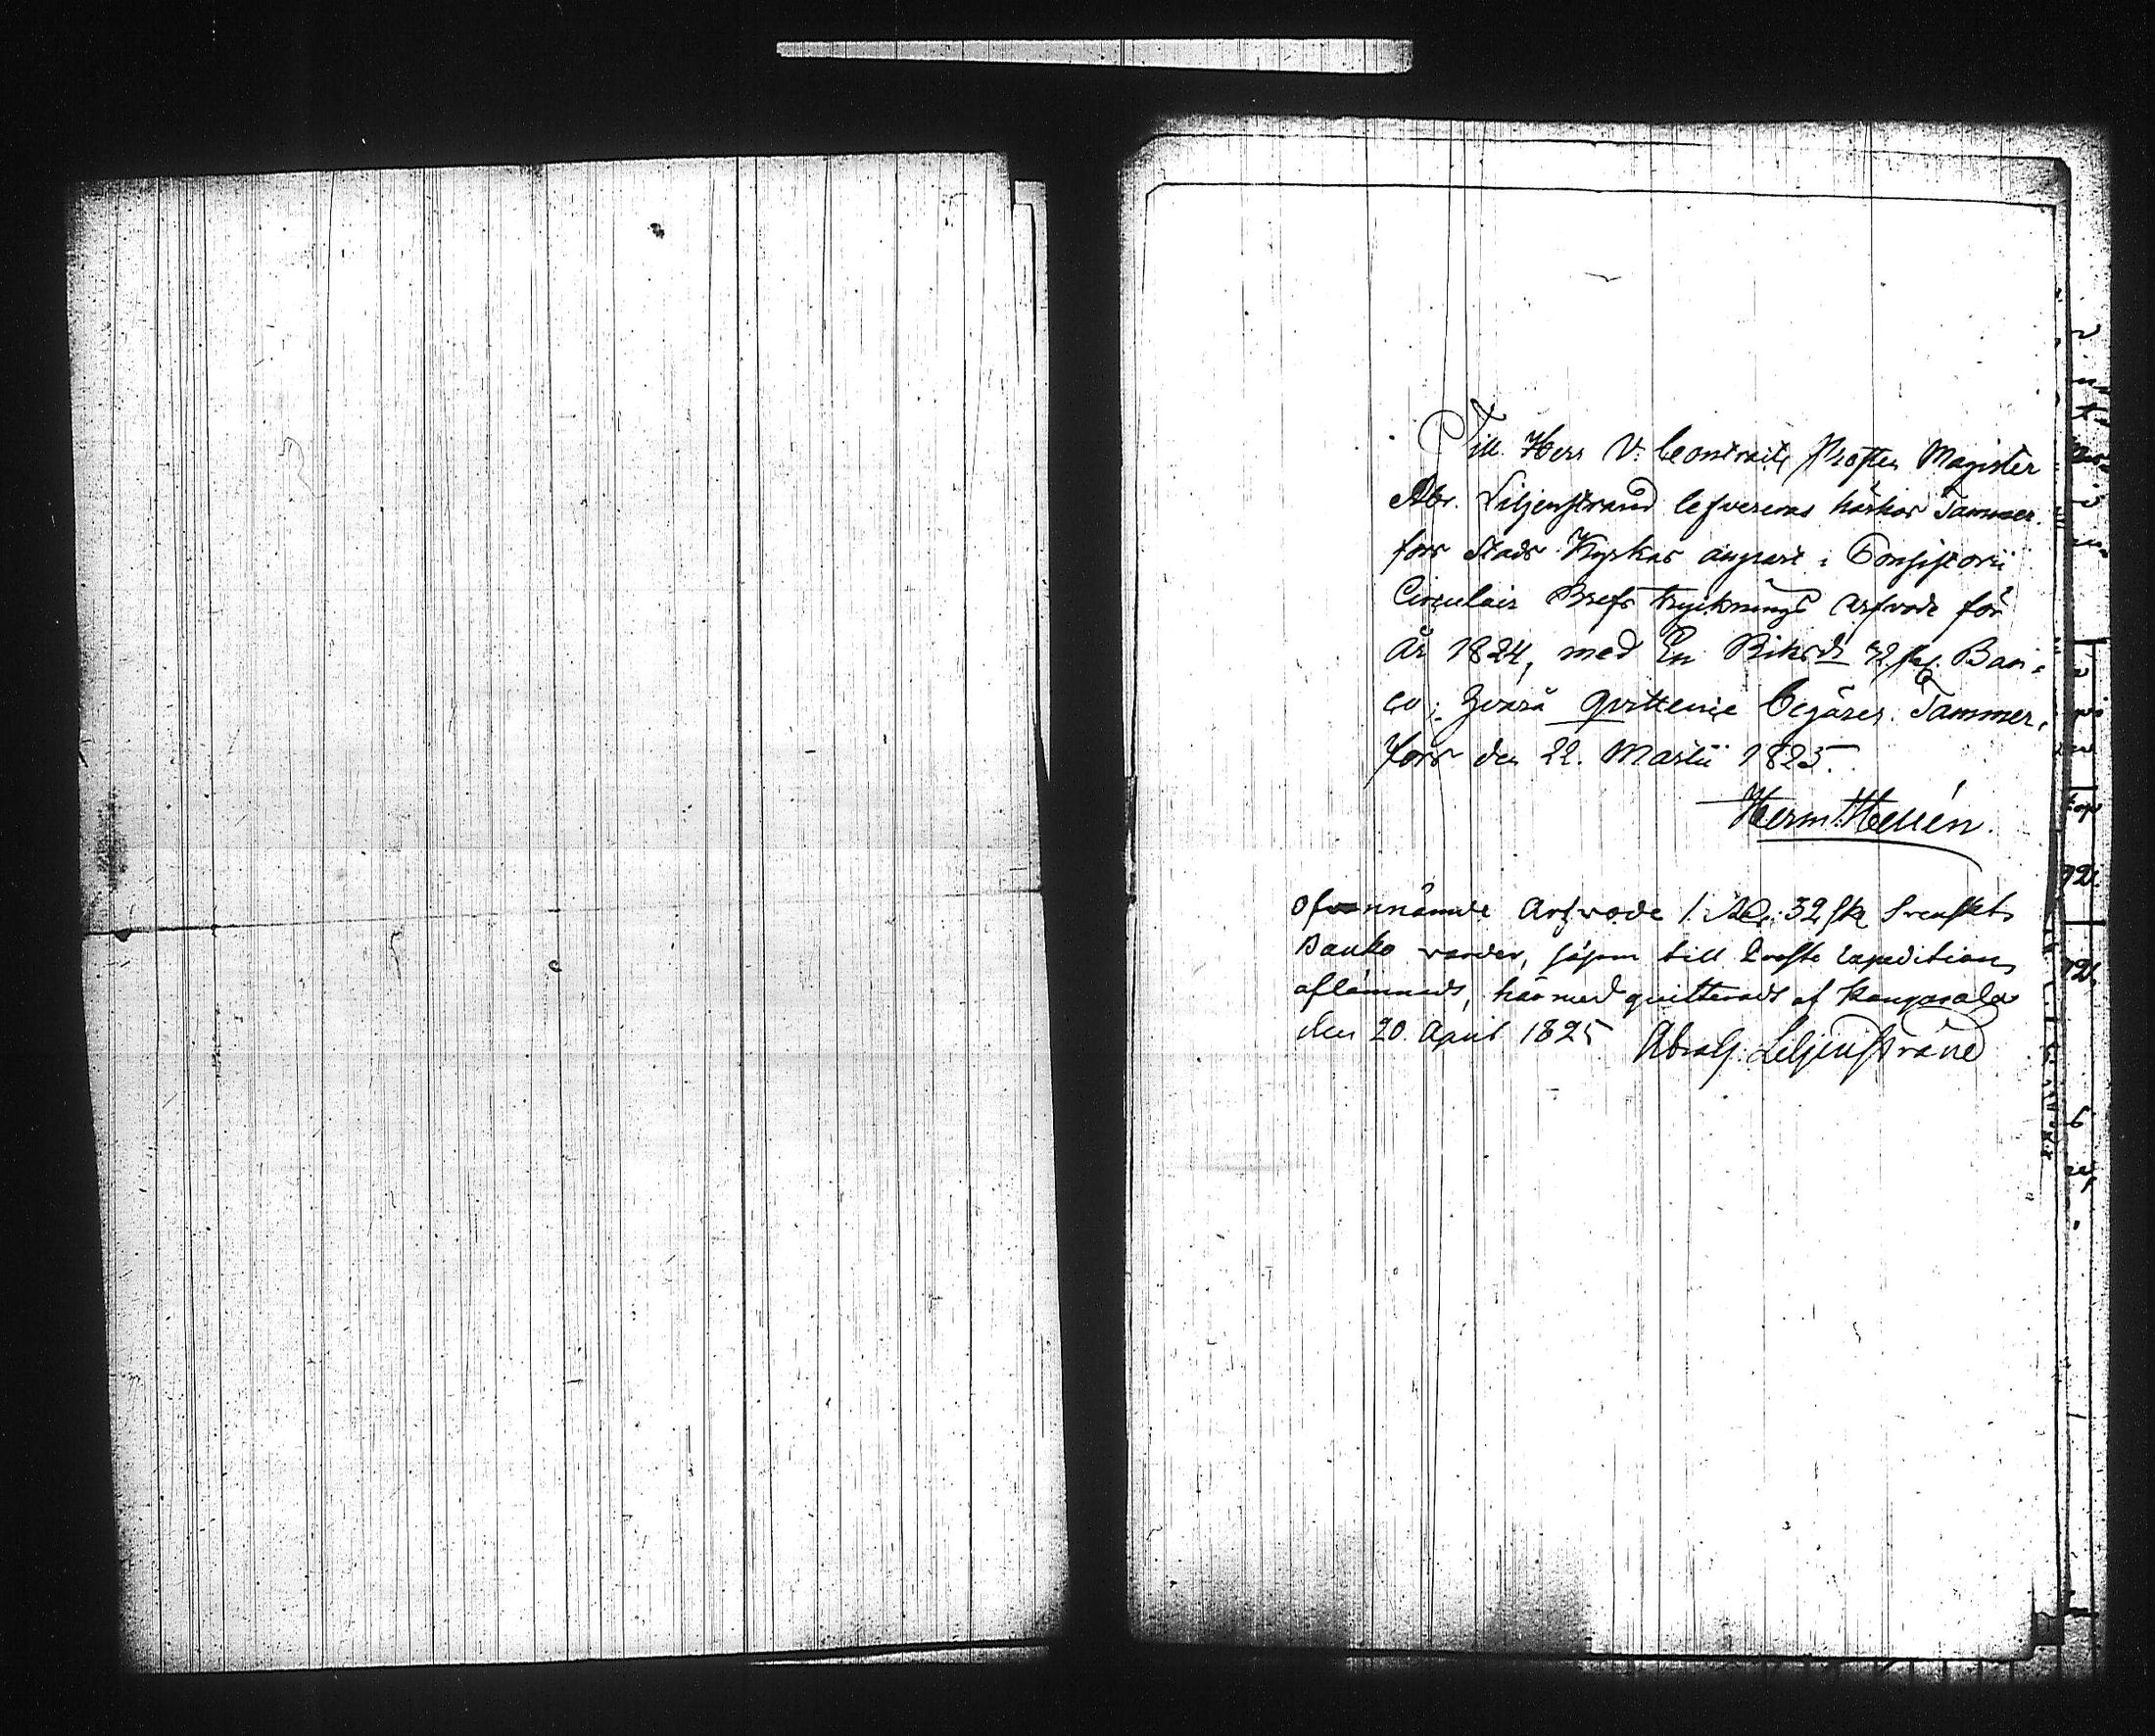 Till Herr V. Contracts Prosten Magister
Abr. Liljenstrand lefvereras härhos Tammer-
fors Stads Kyrkas anpart i Consistorii
Circulair Brefs trycknings Arfvode för
År 1824, med En Riksd 32 sk. Ban-
co; hvarå qvittence begäres. Tammer-
fors den 22. Martii 1825.
Herm: Hellén.
Ofvannämde Arfvode 1 Rd. 32 sk Svenskt
Banko varder, såsom till Prosts Expedition
aflämnadt, härmed quitteradt af Kangasala
den 20. April 1825 Abrah: Liljenstrand